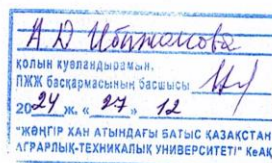 А Д Ибжанова
қолын куәландырамын.
ПЖЖ басқармасының басшысы
2024 ж. « 27 » 12
"ЖӘҢГІР ХАН АТЫНДАҒЫ БАТЫС ҚАЗАҚСТАН
АГРАРЛЫҚ-ТЕХНИКАЛЫҚ УНИВЕРСИТЕТІ" КеАҚ